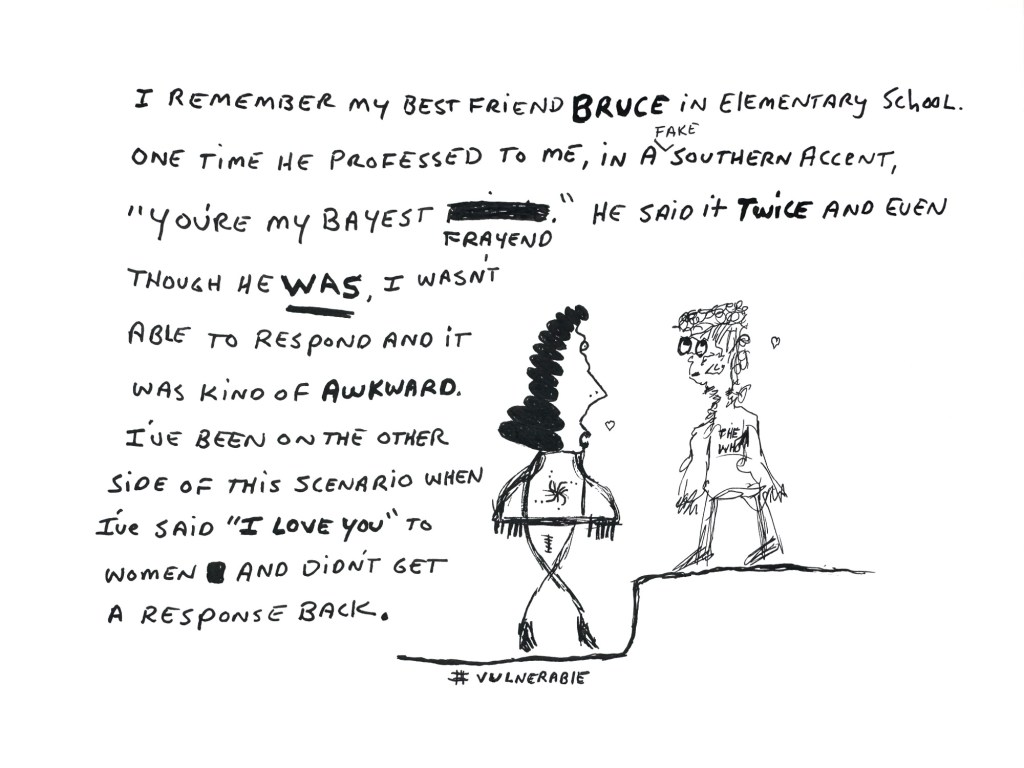 I REMEMBER MY BEST FRIEND BRUCE IN ELEMENTARY SCHOOL.
ONE TIME HE PROFESSED TO ME, IN A FAKE SOUTHERN ACCENT,
"YOU'RE MY BAYEST FRAYEND." HE SAID IT TWICE AND EVEN
THOUGH HE WAS, I WASN'T
ABLE TO RESPOND AND IT
WAS KIND OF AWKWARD.
I'VE BEEN ON THE OTHER
SIDE OF THIS SCENARIO WHEN
I'VE SAID "I LOVE YOU" TO
WOMEN AND DIDN'T GET
A RESPONSE BACK.
THE
WHO
# VULNERABLE